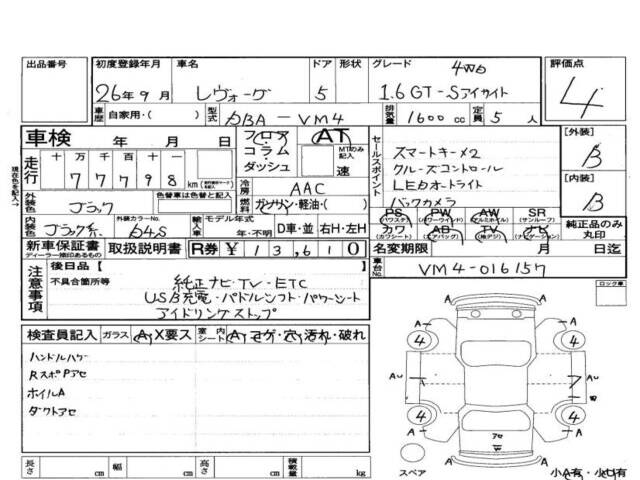 出品番号 初度登録年月 車名 ドア 形状 グレード 4WD 評価点
26年9月 レヴォーグ 5 1.6GT-Sアイサイト 4
車歴 自家用・( ) 型式 DBA-VM4 排気量 1600 cc 定員 5人
車検 年 月 日 フロア コラム ダッシュ AT MTのみ記入 速
走行 十 万 千 百 十 一
77798 km
冷房 AAC
燃料 ガソリン・軽油・( )
外装色 ブラック 色替車は色替前色
内装色 ブラック系 外装カラーNo. D4S 輸入車 モデル年式 年・不明 D車・並 右H・左H
セールスポイント
スマートキー×2
クルーズコントロール
LEDオートライト
バックカメラ
PS PW AW SR
(パワステ) (パワーウィンド) (アルミホイル) (サンルーフ)
カワ AB TV ナビ
(カワシート) (エアバッグ) (純正) (ナビゲーション)
純正品のみ丸印
【外装】 B
【内装】 B
現在色を記入→
新車保証書 取扱説明書 R券 ¥13,610 名変期限 月 日迄
ディーラー捺印あるもの
車台No. VM4-016157
注意事項 後日品【 】
不具合箇所等
純正ナビ・TV・ETC
USB充電・パドルシフト・パワーシート
アイドリングストップ
ロック車
検査員記入 ガラス A・X要ス 室内シート A・コゲ・穴・汚れ・破れ
RスポPアセ
ホイルA
ダクトアセ
A A
4 4
AU AU
4 4
アセ
A A
スペア 小A有・小U有
長さ cm 幅 cm 高さ cm 積載量 kg